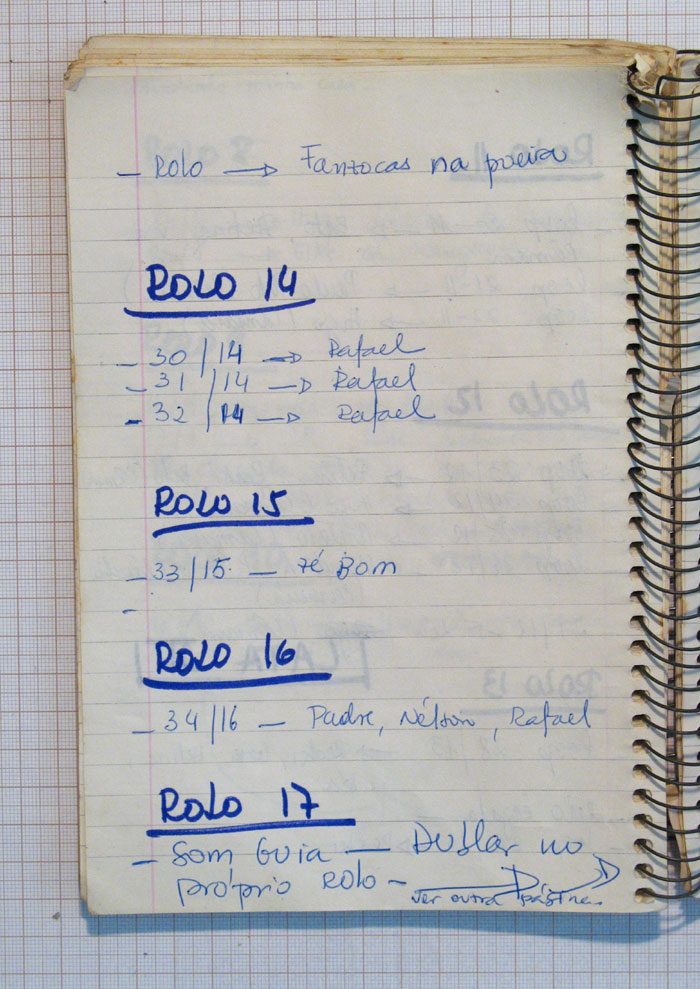 - ROLO → Fantocas na poeira
ROLO 14
- 30/14 → Rafael
- 31/14 → Rafael
- 32/14 → Rafael
ROLO 15
- 33/15 - Zé Bom
-
ROLO 16
- 34/16 - Padre, Nélson, Rafael
ROLO 17
- Som Guia - Dublar no
próprio rolo -
ver outra página